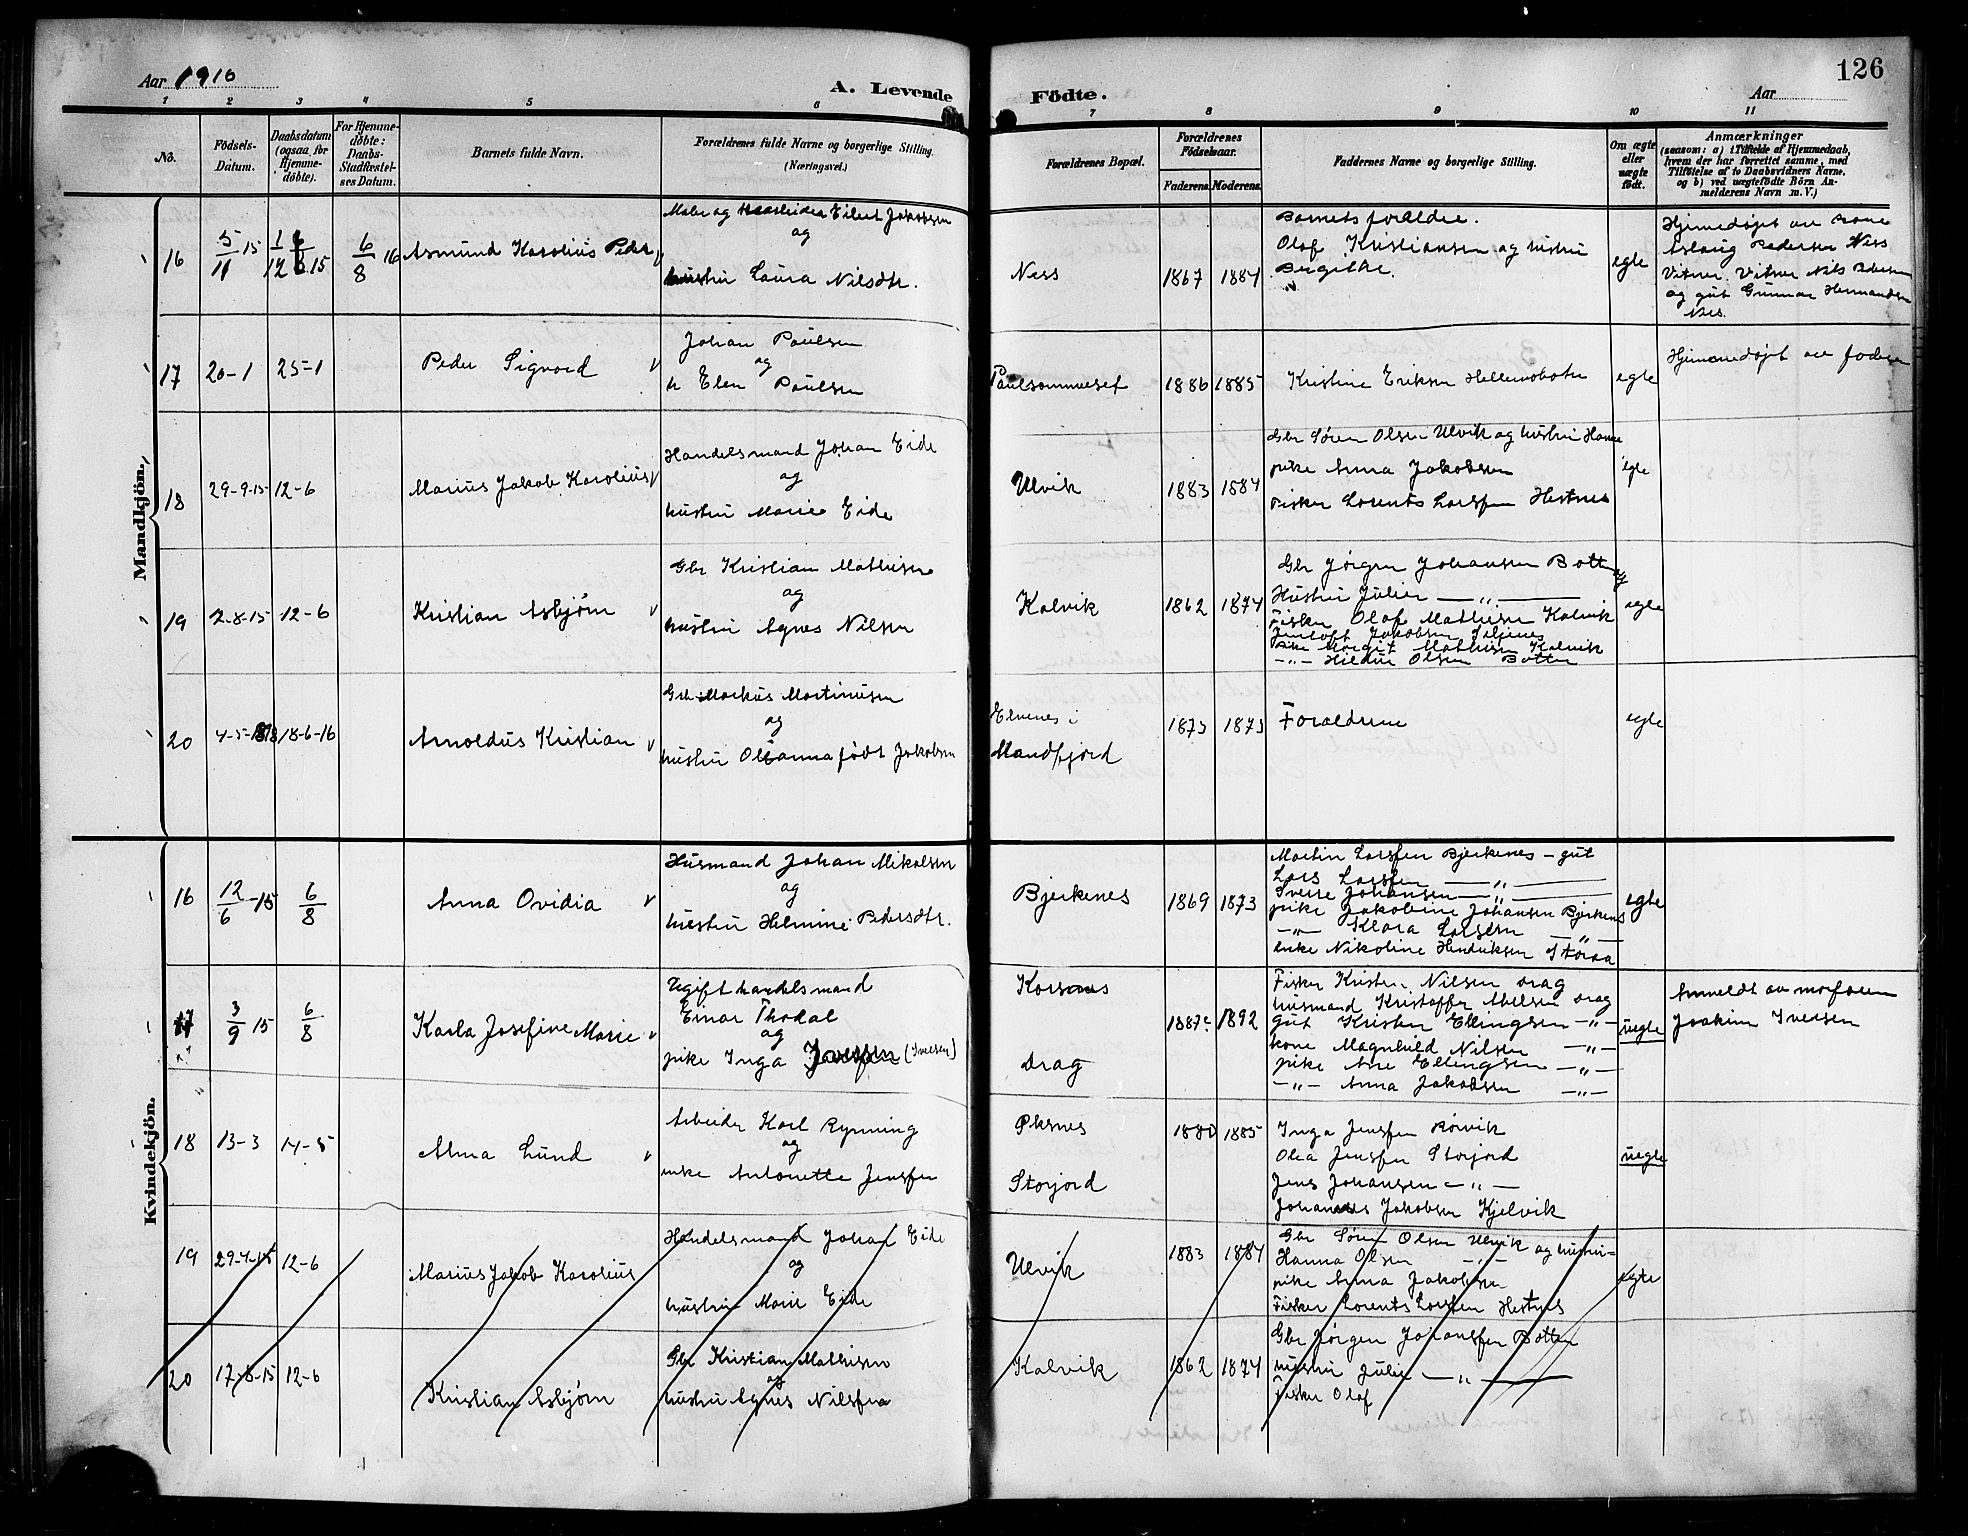 Aar 1916
A. Levende
Födte.
Aar
126
1 2 3 4 5 6 7 8 9 10 11
No.
Födsels-
Datum.
Daabsdatum
(ogsaa for
Hjemme-
döbte).
For Hjemme-
döbte:
Daabs-
Stadfæstel-
ses Datum.
Barnets fulde Navn.
Forældrenes fulde Navne og borgerlige Stilling.
(Næringsvei.)
Forældrenes Bopæl.
Forældrenes
Födselsaar.
Faderens. Moderens.
Faddernes Navne og borgerlige Stilling.
Om ægte
eller
uægte
födt.
Anmærkninger
(saasom: a) i Tilfælde af Hjemmedaab,
hvem der har forrettet samme, med
Tilföielse af to Daabsvidners Navne,
og b) ved uægtefödte Börn An-
melderens Navn m. V.)
Mandkjön.
16
5/11 15
6/8 16
Asmund Karolius Peder
Maler og Eilert Jakobsen
og
hustru Laura Nilsdtr.
Ness
1867 1884
Barnets forældre.
Olaf Kristiansen og hustru
Bergithe.
egte
Hjemmedøpt av kone
Aslaug Pedersen Ness
Vitner Nils Pedersen
og gut Gunnar Hermandsen
Nes.
17
20-1
25-1
Peder Sigvard
Johan Paulsen
og
h Elen Paulsen
1886 1885
Kristine Eriksen Hellemobotn
egte
Hjemmedøpt av faderen
18
29-9-15
12-6
Marius Jakob Karolius
Handelsmand Johan Eide
og
hustru Marie Eide
Ulvik
1883 1884
Gbr Søren Olsen Ulvik og hustru Hanna
pike Anna Jakobsen
Fisker Lorents Larssen Hestnes
egte
19
2-8-15
12-6
Kristian Asbjørn
Gbr Kristian Mathisen
og
hustru Agnes Nilsen
Kalvik
1862 1874
Gbr Jørgen Johansen Botten
og
Hustru Julie — „ —
Fisker Olaf Mathisen Kalvik
Jakobsen
Pike Margit Mathisen Kalvik
— „ — Hildur Olsen Botten
egte
20
4-5-
18-6-16
Arnoldus Kristian
Gbr Markus Martinusen
og
hustru Olianna født Jakobsen
Elvenes i
Mandfjord
1873 1873
Foraldrene
egte
Kvindekjön.
16
12/6 -15
6/8
Anna Ovidia
Husmand Johan Mikalsen
og
hustru Helmine Pedersdtr.
Bjerkenes
1869 1873
Martin Larssen Bjerkenes - gut
Lars Larssen — „ —
Sverre Johansen — „ —
pike Jakobine Johansen Bjerkenes
— „ — Klara Larssen — „ —
enke Nikoline Hendriksen Støraa
egte
17
3/9 15
6/8
Karla Josefine Marie
Ugift handelsmand
Einar Thodal
og
pike Inga (Iversen)
Korsnes
Drag
1887 1892
Fisker Kristen Nilsen Drag
husmand Kristoffer Abelsen Drag
gut Kristen Ellingsen — „ —
kone Magnhild Nilsen — „ —
pike Ane Ellingsen — „ —
— „ — Anna Jakobsen — „ —
uegte
Anmeldt av morfaren
Joakim Iversen
18
13-3
14-5
Alma Lund
Arbeider Karl Rynning
og
enke Antonette Jenssen
Storjord
1880 1885
Inga Jenssen Rørvik
Olea Jenssen Storjord
Jens Johansen — „ —
Johannes Jakobsen Kjelvik
uegte
19
12-6
Marius Jakob Karolius
Handelsmand Johan Eide
og
hustru Marie Eide
Ulvik
1883 1884
Gbr Søren Olsen Ulvik og hustru
Hanna Olsen — „ —
pike Anna Jakobsen
Fisker Lorents Larssen Hestnes
egte
20
17-8-15
12-6
Kristian Asbjørn
Gbr Kristian Mathisen
og
hustru Agnes Nilssen
Kalvik
1862 1874
Gbr Jørgen Johanssen Botten
hustru Julie — „ —
Fisker Olaf